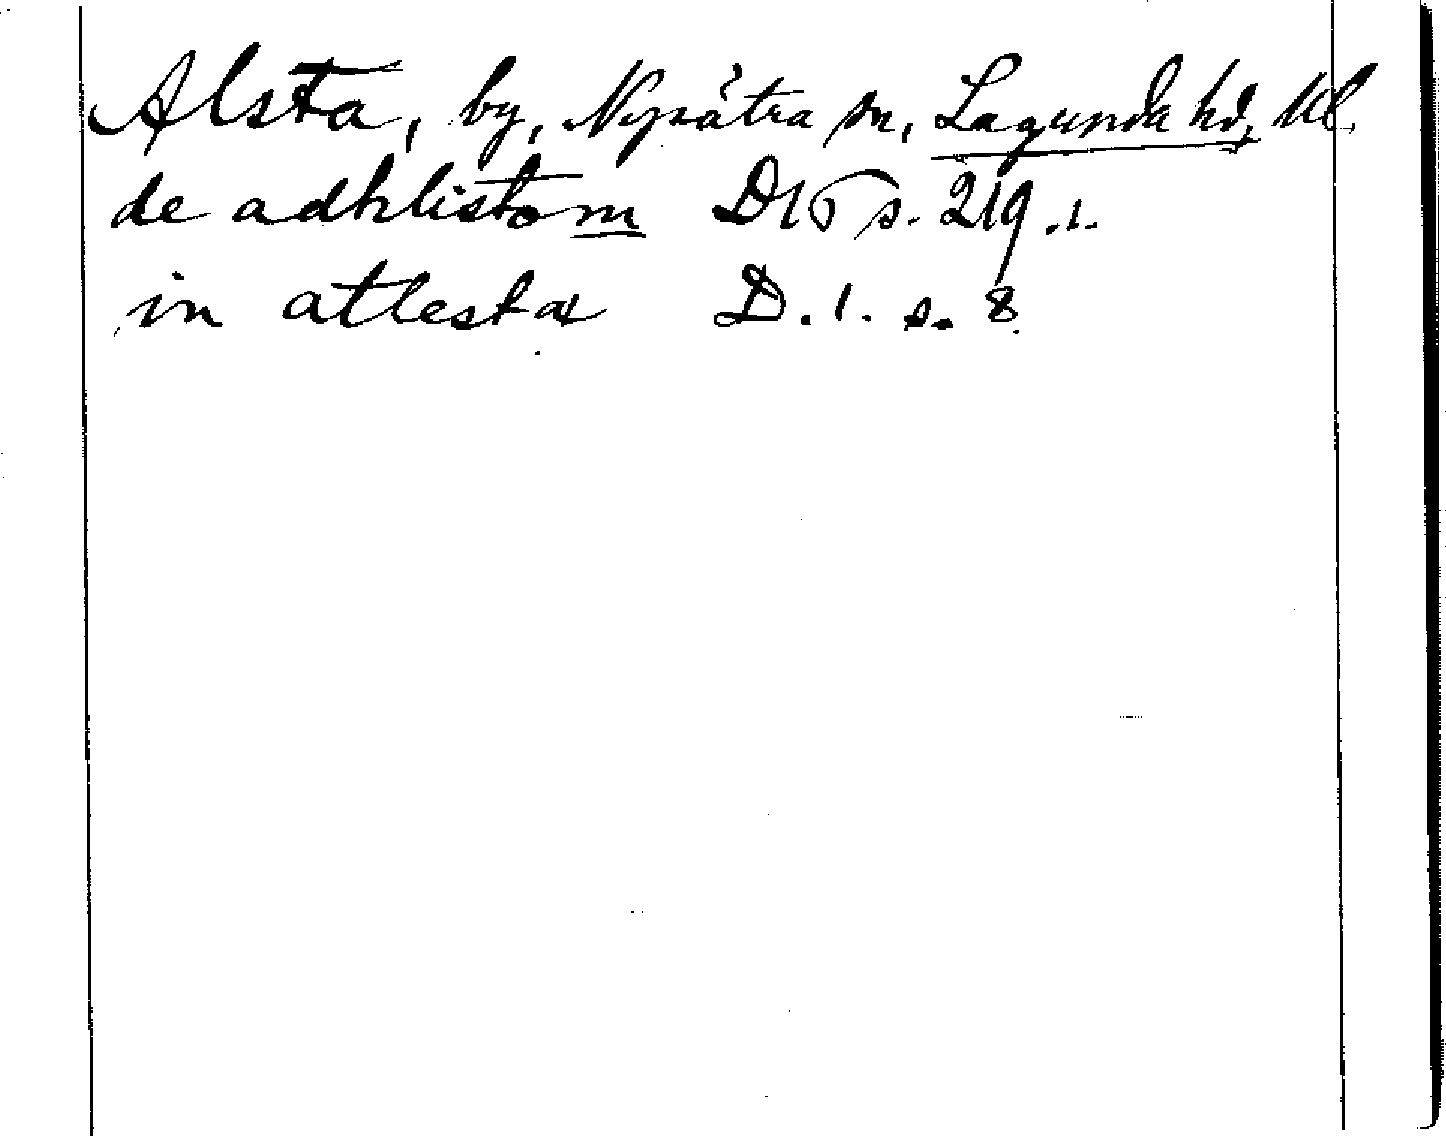 Alsta, by, Nysätra sn, Lagunda hd, Ul.
de adhlistom D16 s. 219.1.
in atlesta D.1. s. 8